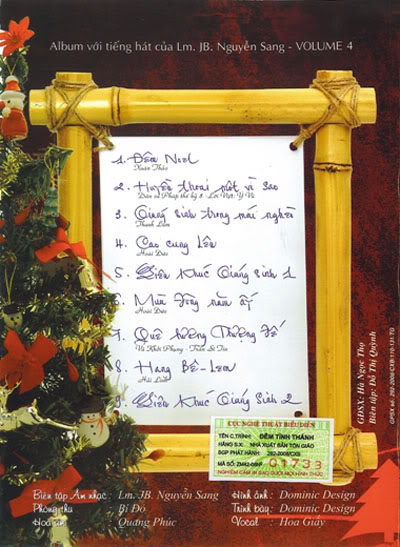 Album với tiếng hát của Lm. JB. Nguyễn Sang - VOLUME 4
1. Đêm Noel
Xuân Thảo
2. Huyền thoại một vì sao
Dân ca Pháp thế kỷ 8 - Lời Việt: Y Vũ
3. Giáng sinh trong mái nghèo
Thanh Lâm
4. Cao cung lên
Hoài Đức
5. Liên Khúc Giáng Sinh 1
6. Mùa Đông năm ấy
Hoài Đức
7. Quê hương Thượng Đế
Vũ Khởi Phụng - Trần Sĩ Tín
8. Hang Bê-Lem
Hải Linh
9. Liên Khúc Giáng Sinh 2
CỤC NGHỆ THUẬT BIỂU DIỄN
TÊN C.TRÌNH: ĐÊM TĨNH THÁNH
HÃNG S.X. NHÀ XUẤT BẢN TÔN GIÁO
BGP PHÁT HÀNH: 292-2006/CXB
MÃ SỐ:
01733
GĐSX: Hà Ngọc Thọ
Biên tập: Đỗ Thị Quỳnh
GPSX số: 292-2006/CXB-110-131/TG
Biên tập Âm nhạc: Lm. JB. Nguyễn Sang
Phòng thu Bí Đỏ
Hoà âm Quang Phúc
Hình ảnh: Dominic Design
Trình bày: Dominic Design
Vocal: Hoa Giấy